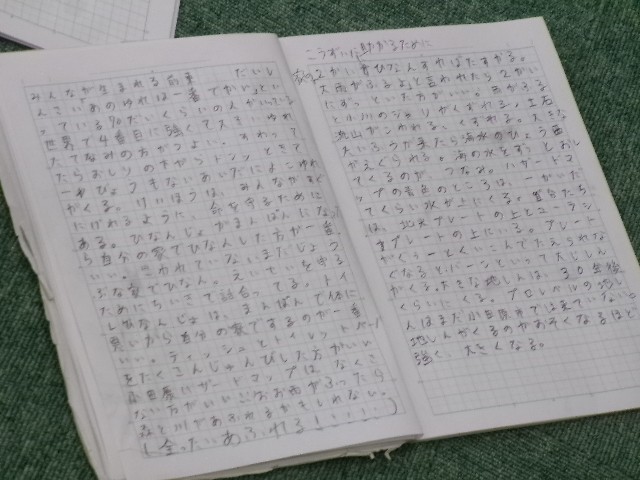 みんなが生まれる前の だいし
んさいあのゆれは一番でかいといっ
っている90だいくらいの人がいっている
世界で4番目に強くてスキいゆれ
たてなみの方がつよい。すわって
たらおしりの下からドンッときて
がくる。けいほうは、みんながすぐ
にげれるように、命を守るために
ある。ひなんじょがまんぱんになった
ら自分の家でひなんした方が一番
いい。こわれていないまだじょう
ぶな家でひなん。えいせいを守る
ために 話合ってる。トイ
しひなんじょは、まんぱんで体に
悪いから自分の家でするのが一番
いい。ティッシュとトイレットペーパー
をたくさんじゅんびした方がいい
ハザードマップは、なくさ
ない方がいいこなお雨がふったら
森と川があふれるかもしれない。
し全ったいあふれる!!!!!
こうずいに助かるために
2かいにひなんすればたすかる。
大雨がふるよと言われたら2かい
にずっといた方がいい。雨がふる
と小川のジャリがくずれる。土石
流山がこわれる、くずれる。大きな
たいふうが来たら海水のひょう面
がえぐられる。海の水をずっとおし
てくるのが、つなみ。ハザードマ
ップの黄色のところは、一かいた
てくらい水が上にくる。自分たち
は、北米プレートの上とユーラシ
アプレートの上にいる。プレート
がぐぅーとくいこんでたえられな
くなるとバーンといって大じしん
がくる。大きな地しんは、30年後
くらいにくる。プロレベルの地し
んはまだ小田原市では来ていない
地しんがくるのがおそくなるほど
強く、大きくなる。